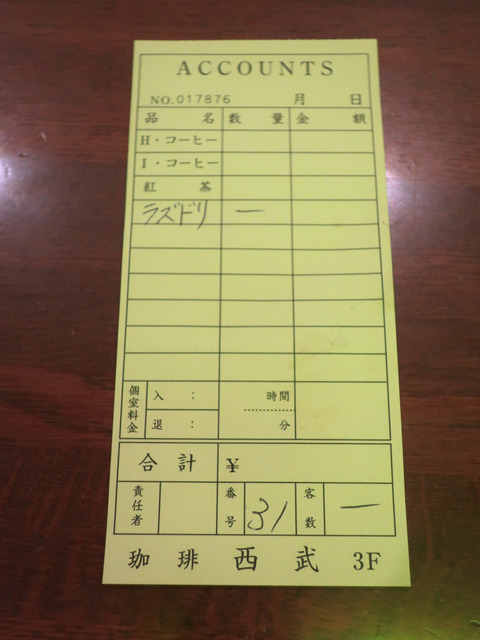 ACCOUNTS
NO.017876 月 日
品 名 数 量 金 額
H・コーヒー
I・コーヒー
紅 茶
ラズドリ 一
個室料金 入 : 時間
退 : 分
合 計 ¥
責任者 番号 31 客数 一
珈 琲 西 武 3F